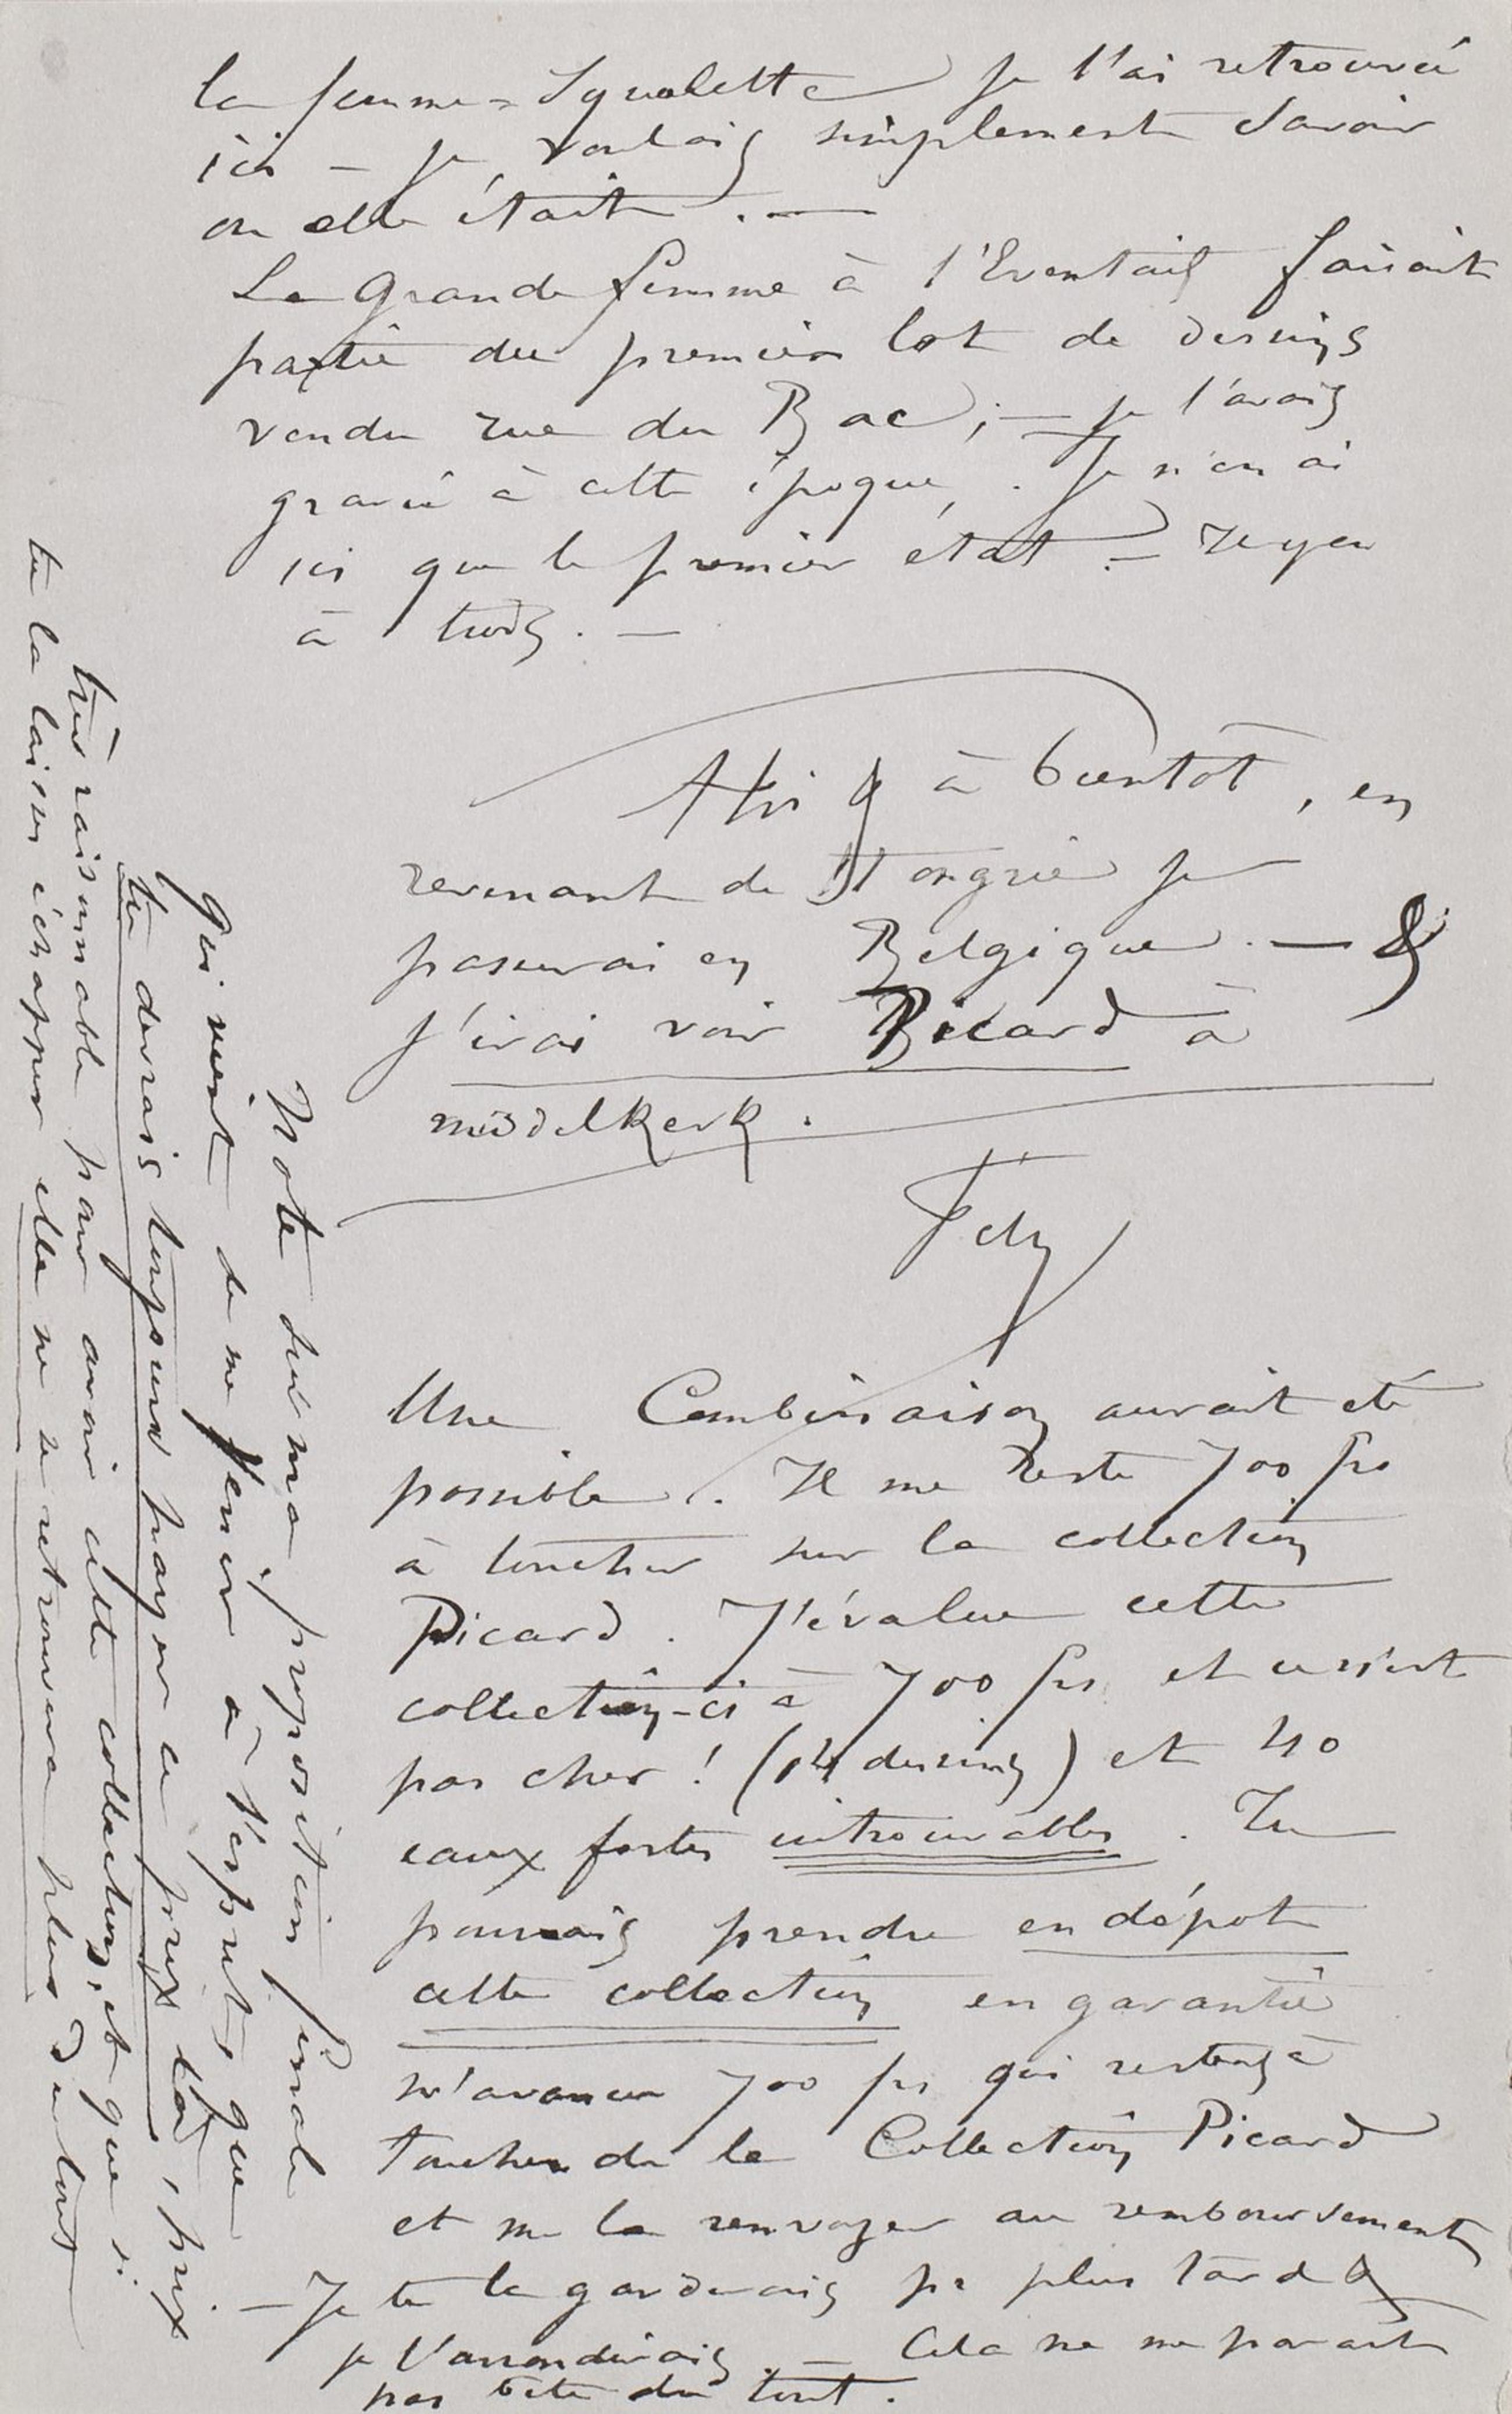 la femme-Squelette je l'ai retrouvée
ici – je voulais simplement savoir
ou elle était. —
La Grande femme à l'Eventail faisait
partie du premier lot de dessins
vendu rue du Bac; — je l'avais
gravée à cette époque. Je n'en ai
ici que le premier état. – Il y en
à trois. —
à bientôt, en
revenant de Hongrie je
passerai en Belgique. — &
j'irai voir Picard à
middelkerk.
Fély
Une Combinaison aurait été
possible. Il me reste 700 frs
à toucher sur la collection
Picard. J'évalue cette
collection-ci à 700 frs et ce n'est
pas cher! (14 dessins) et 40
eaux fortes introuvables. Tu
pourrais prendre en dépot
cette collection en garantie
m'avancer 700 frs qui restent à
toucher de la Collection Picard
et me la renvoyer au remboursement
– Je te la garderais pr plus tard &
je l'arrondirais. – Cela ne me parait
pas bête du tout.
Note sur ma proposition finale
qui vient de me venir à l'esprit, que
tu devrais toujours payer ce prix là, prix
très raisonnable pour avoir cette collection, et que si
tu la laisses échapper elle ne se retrouvera plus